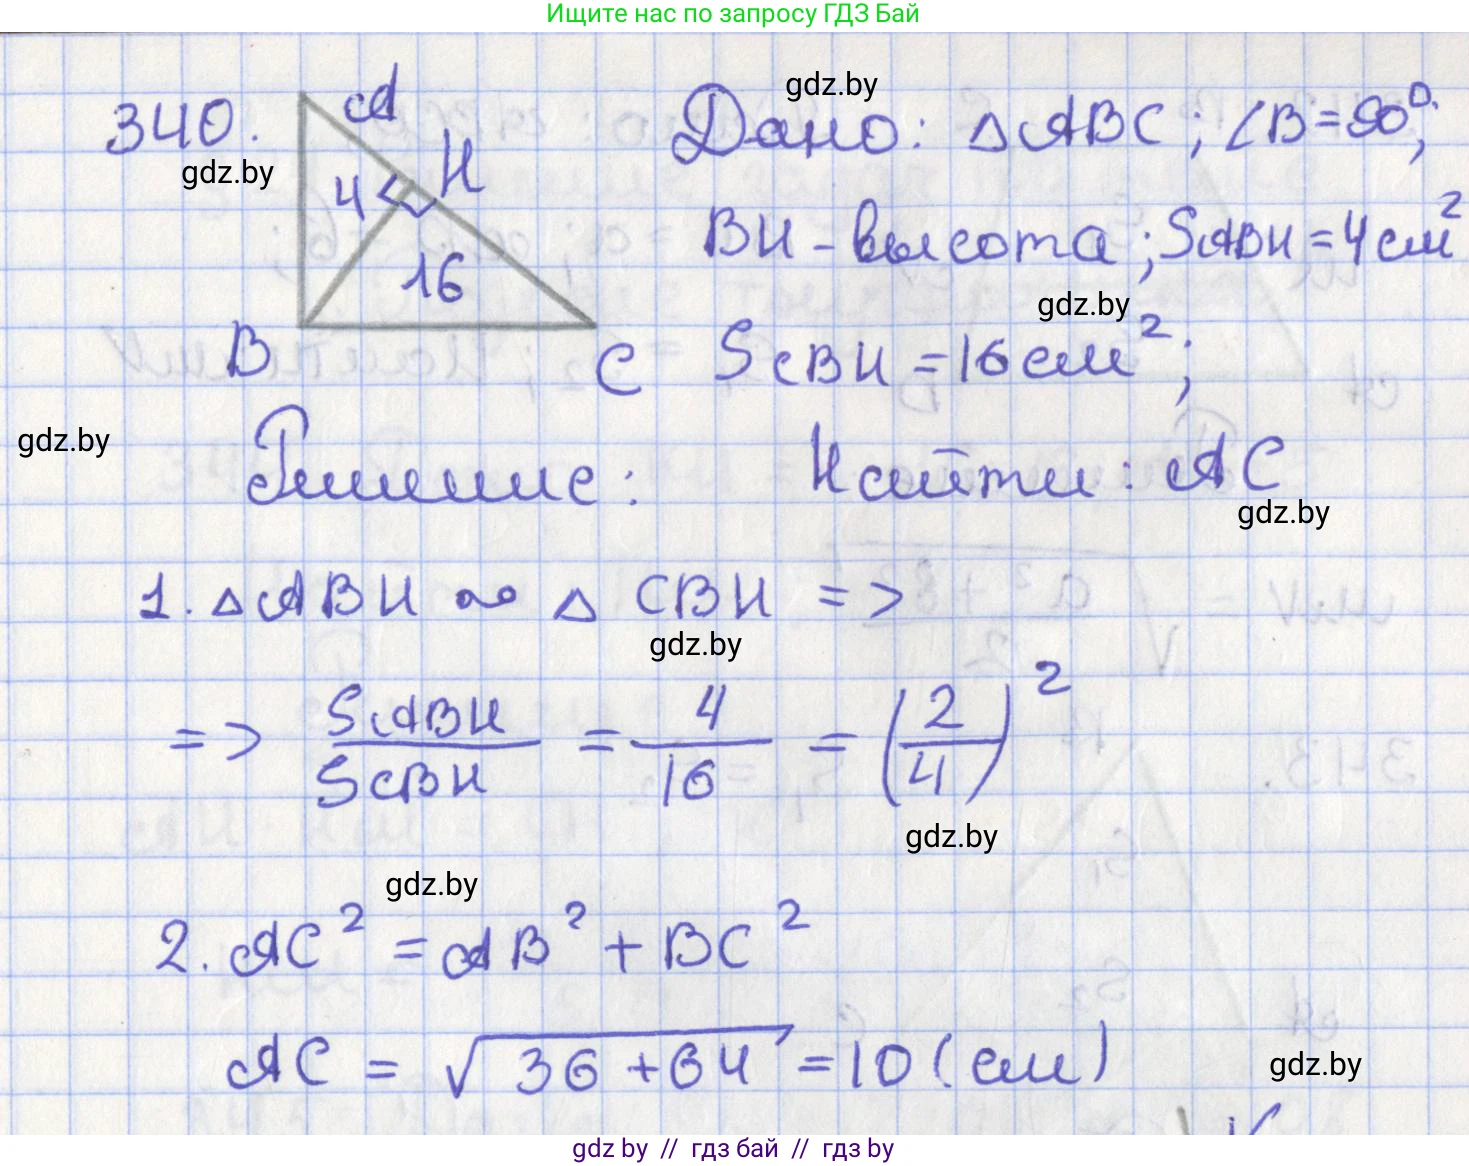 Ищите нас по запросу ГДЗ Бай
340.
A
H
4
16
B
C
gdz.by
gdz.by
Дано: △ABC; ∠B=90°;
BH - высота; SABH = 4 см²
gdz.by
SCBH = 16 см²;
gdz.by
Решение:
Найти: AC
gdz.by
1. △ABH ∾ △ CBH =>
gdz.by
=> SABH/SCBH = 4/16 = (2/4)²
gdz.by
gdz.by
2. AC² = AB² + BC²
AC = √36+64 = 10 (см)
gdz.by
gdz.by // гдз бай // гдз by